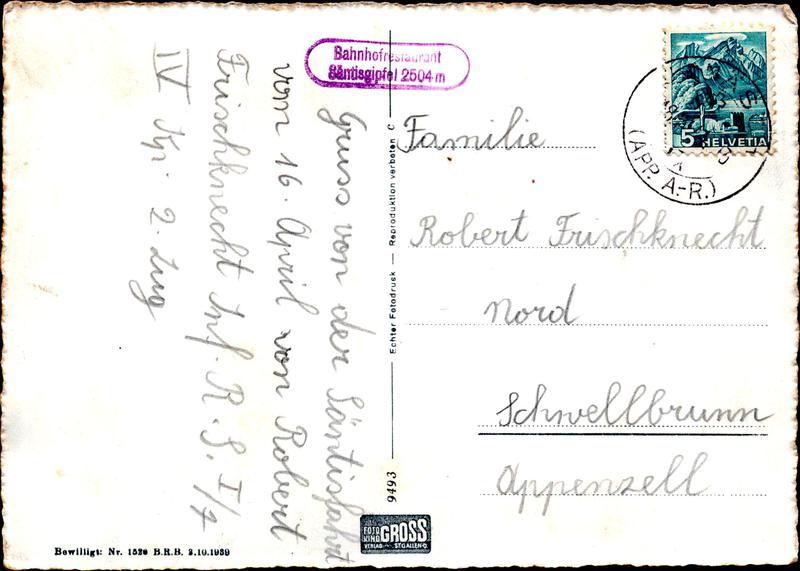 Bahnhofrestaurant
Säntisgipfel 2504 m
Gruss von der Säntisfahrt
vom 16. April von Robert
Frischknecht Inf. R. S. I/7
IV Kp. 2. Zug
Familie
Robert Frischknecht
Nord
Schwellbrunn
Appenzell
5 HELVETIA
(APP. A.-R.)
Echter Fotodruck — Reproduktion verboten C
9493
FOTO
KINO GROSS
VERLAG ST.GALLEN-O.
Bewilligt: Nr. 1529 B.R.B. 3.10.1939